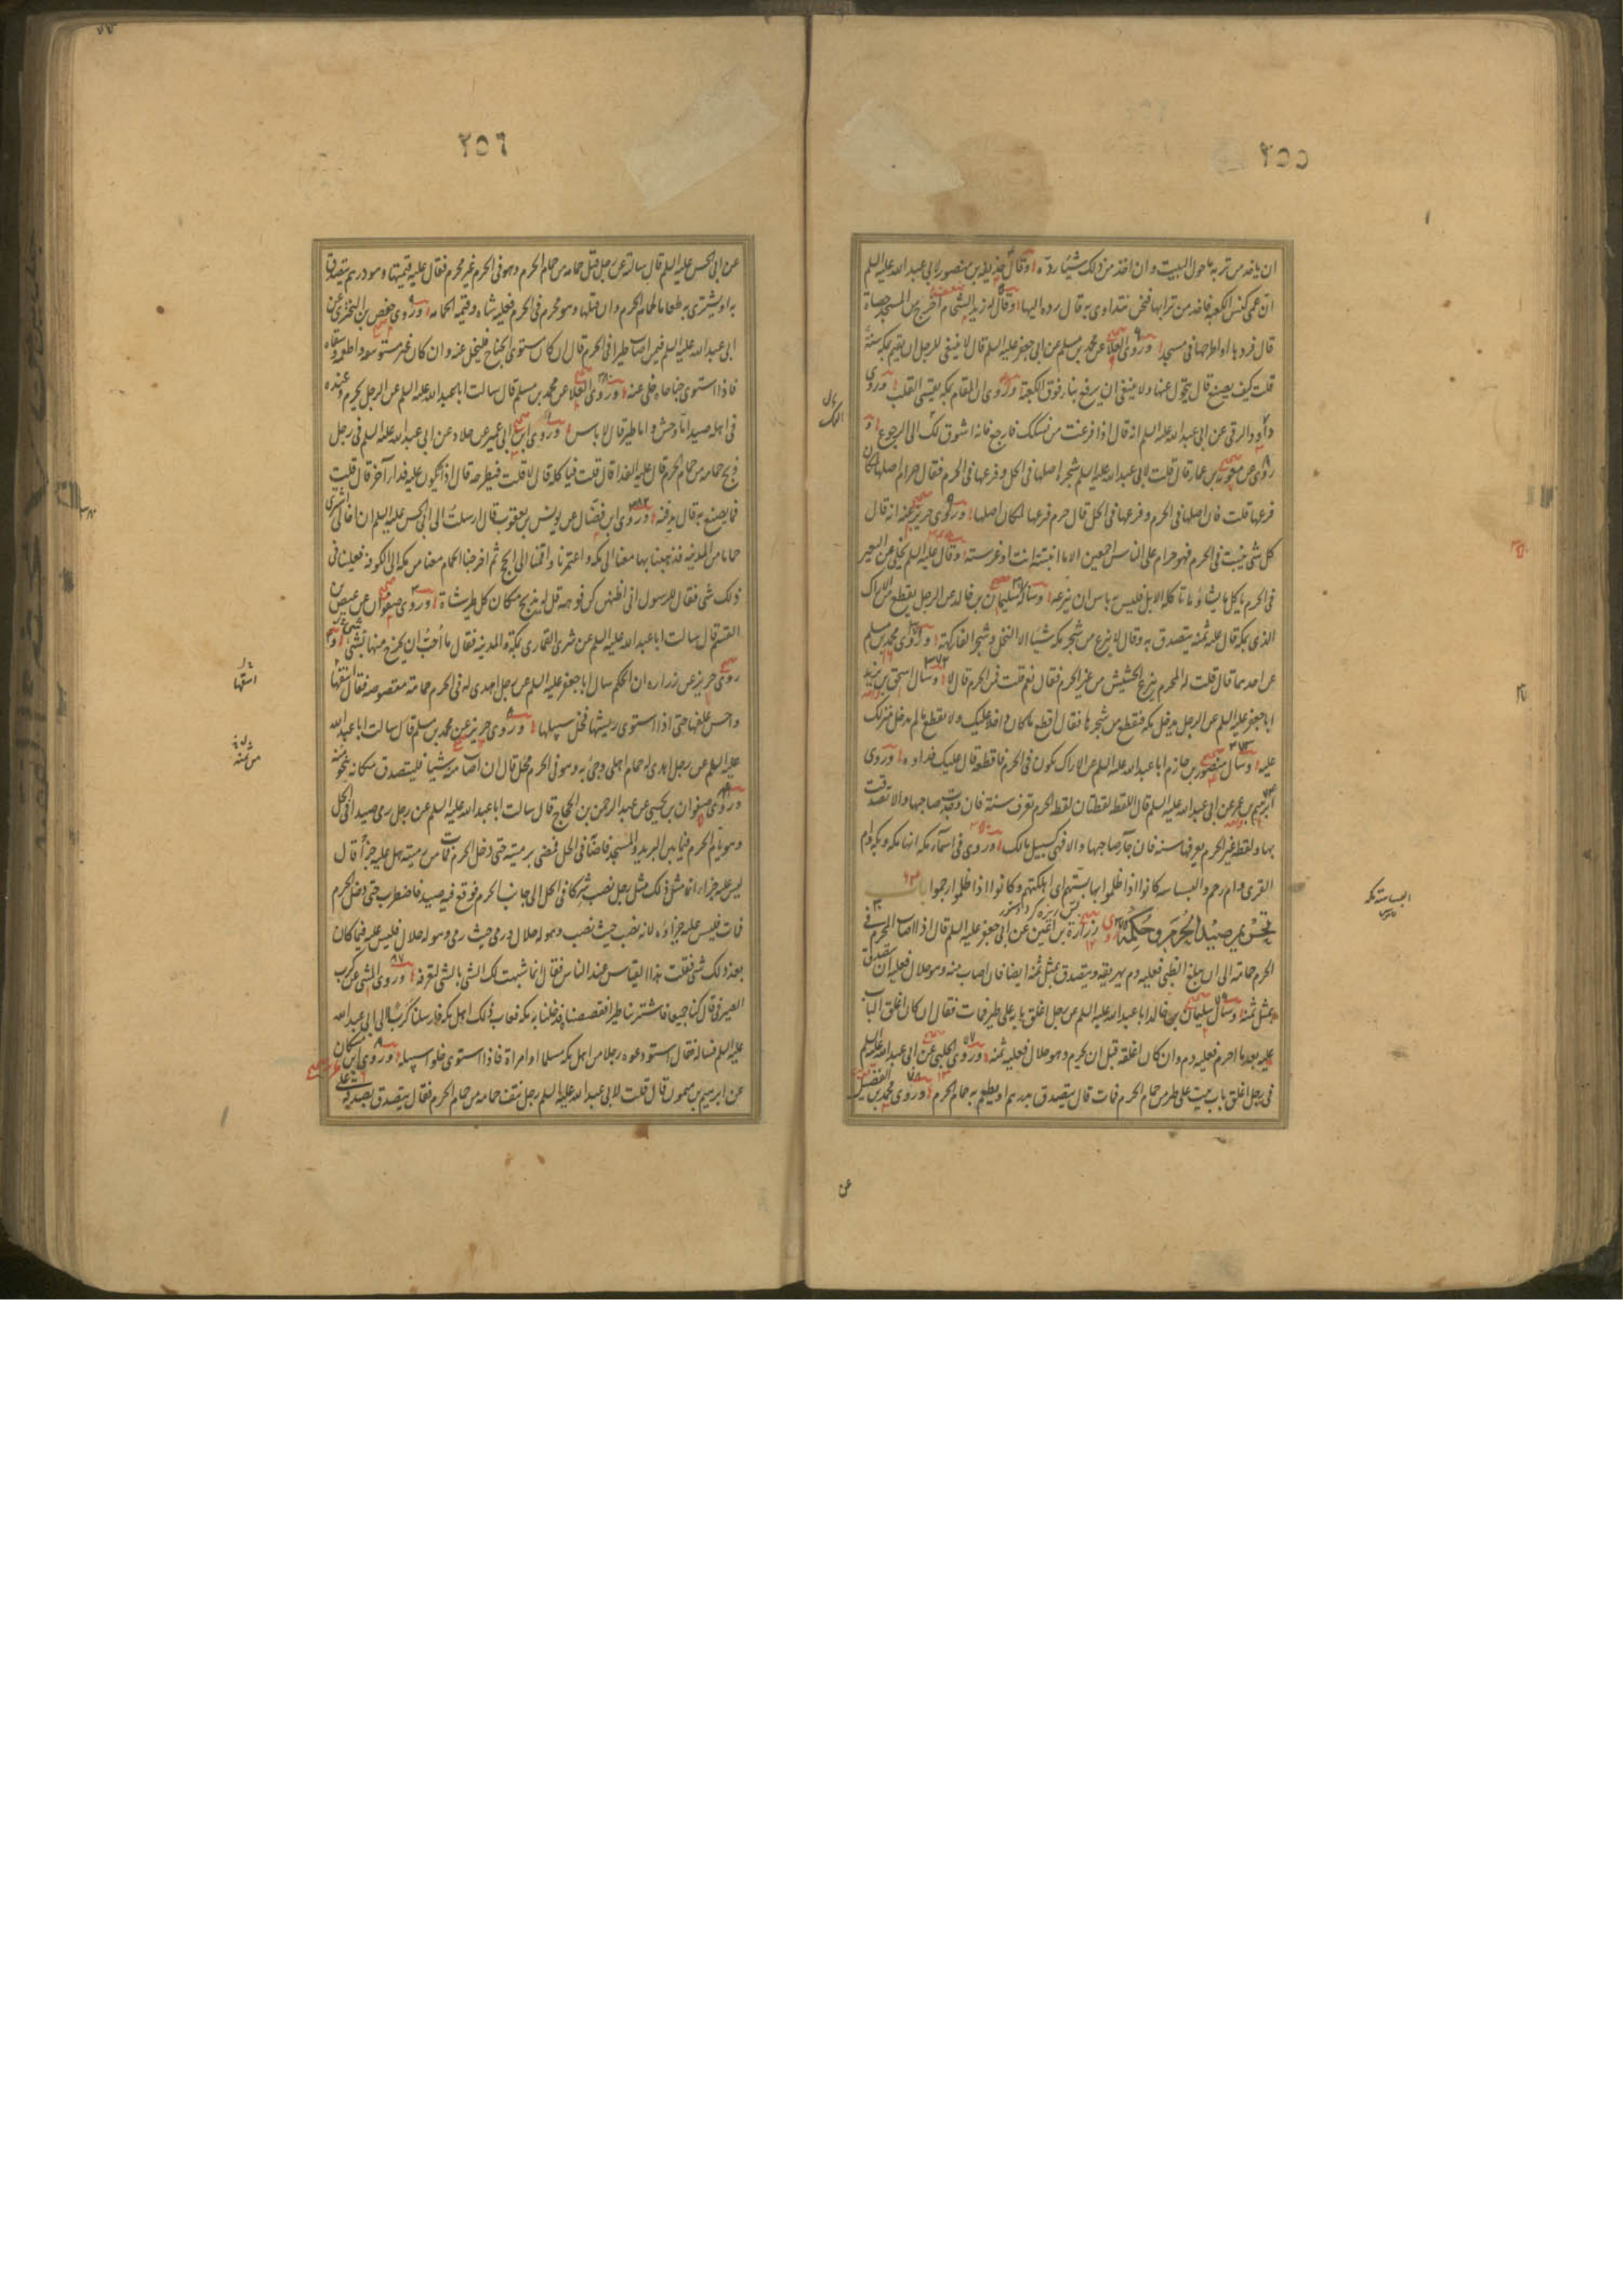 ٢٥٥
ان ياخذ من تربة ما حول البيت و ان اخذ من ذلك شيئا رده و قال حذيفة بن منصور لابى عبد الله عليه السلم
ان عمى كنس الكعبه فاخذ من ترابها فنحن نتداوى به قال رده اليها و قال له زيد الشحام اخرج من المسجد حصاة
قال فردها او اطرحها فى مسجد و روى العلا عن محمد بن مسلم عن ابى جعفر عليه السلم قال لا ينبغى للرجل ان يقيم بمكه سنة
قلت كيف يصنع قال يتحول عنها و لا ينبغى ان يرفع بناء فوق الكعبة و روى ان المقام بمكه يقسى القلب و روى
داود الرقى عن ابى عبد الله عليه السلم انه قال اذا فرغت من نسكك فارجع فانه اشوق لك الى الرجوع و
روى عن معوية بن عمار قال قلت لابى عبد الله عليه السلم شجرة اصلها فى الحل و فرعها فى الحرم فقال حرام اصلها لمكان
فرعها قلت فان اصلها فى الحرم و فرعها فى الحل قال حرم فرعها لمكان اصلها و روى حريز عنه انه قال
كل شى ينبت فى الحرم فهو حرام على الناس اجمعين الا ما انبتته انت او غرسته و قال عليه السلم يخلى عن البعير
فى الحرم ياكل ما يشاء ما تاكله الابل فليس به باس ان ينزعه و ساله سليمان بن خالد عن الرجل يقطع من الاراك
الذى بمكه قال عليه ثمنه يتصدق به و قال لا ينزع من شجر مكه شيئا الا النخل و شجر الفاكهة و روى محمد بن مسلم
عن احدهما قال قلت له المحرم ينزع الحشيش من غير الحرم فقال نعم قلت فمن الحرم قال لا و سال اسحق بن يزيد
ابا جعفر عليه السلم عن الرجل يدخل مكه فيقطع من شجرها فقال اقطع ما كان داخلا عليك و لا تقطع ما لم يدخل منزلك
عليه و سال منصور بن حازم ابا عبد الله عليه السلم عن الاراك يكون فى الحرم فاقطعه قال عليك فداوه و روى
ابرهيم بن عمر عن ابى عبد الله عليه السلم قال اللقطه لقطتان لقطة الحرم تعرف سنة فان وجدت صاحبها و الا تصدقت
بها و لقطة غير الحرم يعرفها سنه فان جآء صاحبها و الا فهى كسبيل مالك و روى فى اسمآء مكه انها مكه و بكه و ام
القرى و ام رحم و البساسه كانوا اذا ظلموا بها بستهم اى اهلكتهم و كانوا اذا ظلموا رحموا باب
تحريم صيد الحرم و حكمه روى زرارة بن اعين عن ابى جعفر عليه السلم قال اذا اصاب المحرم فى
الحرم حمامة الى ان يبلغ الظبى فعليه دم يهريقه و يتصدق بمثل ثمنه ايضا فان اصاب منه و هو حلال فعليه ان يتصدق
بمثل ثمنه و سال سليمان بن خالد ابا عبد الله عليه السلم عن رجل اغلق بابه على طير فمات فقال ان كان اغلق الباب
عليه بعد ما احرم فعليه دم و ان كان اغلقه قبل ان يحرم و هو حلال فعليه ثمنه و روى الحلبى عن ابى عبد الله عليه السلم
فى رجل اغلق باب بيت على طير من حمام الحرم فمات قال يتصدق بدرهم او يطعم به حمام الحرم و روى محمد بن الفضيل
عن
٢٥٦
عن ابى الحسن عليه السلم قال سالته عن رجل قتل حمامه من حمام الحرم و هو فى الحرم غير محرم فقال عليه قيمتها و هو درهم يتصدق
به او يشترى به طعاما لحمام الحرم و ان قتلها و هو محرم فى الحرم فعليه شاه و قيمة الحمامه و روى حفص بن البخترى عن
ابى عبد الله عليه السلم فيمن اصاب طيرا فى الحرم قال ان كان مستوى الجناح فليخل عنه و ان كان غير مستو نتفه و اطعمه و سقاه
فاذا استوى جناحاه خلى عنه و روى العلا عن محمد بن مسلم قال سالت ابا عبد الله عليه السلم عن الرجل يحرم و عنده
فى اهله صيد اما وحش و اما طير قال لا باس و روى ابن ابى عمير عن خلاد عن ابى عبد الله عليه السلم فى رجل
ذبح حمامه من حمام الحرم قال عليه الفدا قال قلت فياكله قال لا قلت فيطرحه قال اذا يكون عليه فداء آخر قال قلت
فما يصنع به قال يدفنه و روى ابن فضال عن يونس بن يعقوب قال ارسلت الى ابى الحسن عليه السلم ان اخا لى اشترى
حماما من المدينه فذهبنا بها معنا الى مكه و اعتمرنا و اقمنا الى الحج ثم اخرجنا الحمام معنا من مكه الى الكوفه فعلينا فى
ذلك شى فقال للرسول انى اظنهن كن فرهه قل له يذبح مكان كل طير شاة و روى صفوان عن عيص بن
القسم قال سالت ابا عبد الله عليه السلم عن شرى القمارى بمكة و المدينه فقال ما أحب ان يخرج منها بشئ و
روى حريز عن زراره ان الحكم سال ابا جعفر عليه السلم عن رجل اهدى له فى الحرم حمامة مقصوصه فقال انتفها
و احسن علفها حتى اذا استوى ريشها فخل سبيلها و روى حريز عن محمد بن مسلم قال سالت ابا عبد الله
عليه السلم عن رجل اهدى له حمام اهلى و جئ به و هو فى الحرم محل قال ان اصاب منه شيئا فليتصدق مكانه بنحو ثمنه
و روى صفوان بن يحيى عن عبد الرحمن بن الحجاج قال سالت ابا عبد الله عليه السلم عن رجل رمى صيدا فى الحل
و هو يؤم الحرم فيما بين البريد و المسجد فاصابه فى الحل فمضى برميته حتى دخل الحرم فمات من رميته هل عليه جزاء قال
ليس عليه جزاء انما مثل ذلك مثل رجل نصب شركا فى الحل الى جانب الحرم فوقع فيه صيد فاضطرب حتى دخل الحرم
فمات فليس عليه جزاؤه لانه نصب حيث نصب و هو له حلال و رمى حيث رمى و هو له حلال فليس عليه فيما كان
بعد ذلك شى فقلت هذا القياس عند الناس فقال انما شبهت لك الشى بالشى لتعرفه و روى المثنى عن كرب
الصيرفى قال كنا جميعا فاشترينا طيرا فقصصناه فدخلنا به مكه فعاب ذلك اهل مكه فارسل كرب الى ابى عبد الله
عليه السلم فساله فقال استودعوه رجلا من اهل مكه مسلما او امراة فاذا استوى خلوا سبيله و روى ابن مسكان
عن ابرهيم بن ميمون قال قلت لابى عبد الله عليه السلم رجل نتف حمامه من حمام الحرم فقال يتصدق بصدقة على